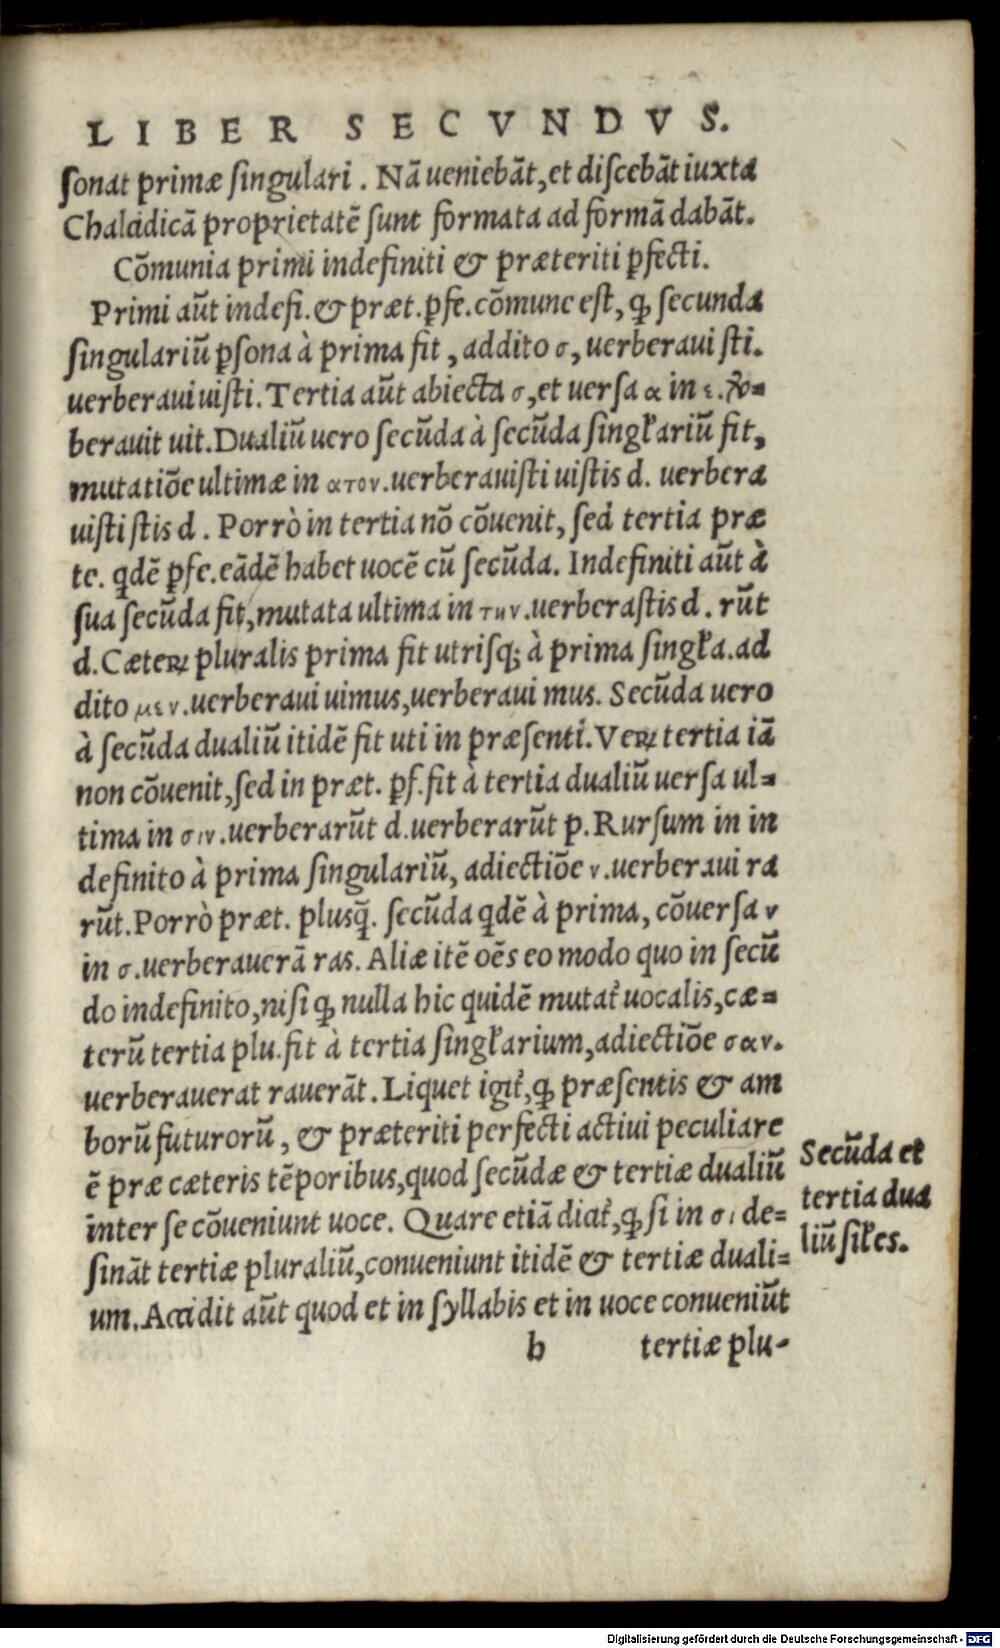 LIBER SECVNDVS.
ſonat primæ ſingulari. Nā ueniebāt, et diſcebāt iuxta
Chalcidicā proprietatē ſunt formata ad formā dabāt.
Cōmunia primi indefiniti & præteriti ꝑfecti.
Primi aūt indefi. & præt. ꝑfe. cōmune eſt, ꝙ ſecunda
ſingulariū ꝑſona à prima fit, addito σ, uerberaui ſti.
uerberaui uiſti. Tertia aūt abiecta σ, et uerſa α in ε.
berauit uit. Dualiū uero ſecūda à ſecūda ſingl’ariū fit,
mutatiōe ultimæ in ατον. uerberauiſti uiſtis d. uerbera
uiſti ſtis d. Porrò in tertia nō cōuenit, ſed tertia præ
te. qdē ꝑfe. eādē habet uocē cū ſecūda. Indefiniti aūt à
ſua ſecūda fit, mutata ultima in την. uerberaſtis d. rūt
d. Cæteꝝ pluralis prima fit utriſq; à prima ſingl’a. ad
dito μεν. uerberaui uimus, uerberaui mus. Secūda uero
à ſecūda dualiū itidē fit uti in præſenti. Veꝝ tertia iā
non cōuenit, ſed in præt. ꝑf. fit à tertia dualiū uerſa ul=
tima in σιν. uerberarūt d. uerberarūt p. Rurſum in in
definito à prima ſingulariū, adiectiōe ν. uerberaui ra
rūt. Porrò præt. pluſq̄. ſecūda qdē à prima, cōuerſa ν
in σ. uerberauerā ras. Aliæ itē oēs eo modo quo in ſecū
do indefinito, niſi ꝙ nulla hic quidē mutat᷑ uocalis, cæ=
terū tertia plu. fit à tertia ſingl’arium, adiectiōe σαν.
uerberauerat rauerāt. Liquet igit᷑, ꝙ præſentis & am
borū futurorū, & præteriti perfecti actiui peculiare
ē præ cæteris tēporibus, quod ſecūdæ & tertiæ dualiū
inter ſe cōueniunt uoce. Quare etiā dicit᷑, ꝙ ſi in σι de=
ſināt tertiæ pluraliū, conueniunt itidē & tertiæ duali=
um. Accidit aūt quod et in ſyllabis et in uoce conueniūt
b tertiæ plu-
Secūda et
tertia dua
liū ſil’es.
Digitalisierung gefördert durch die Deutsche Forschungsgemeinschaft - DFG